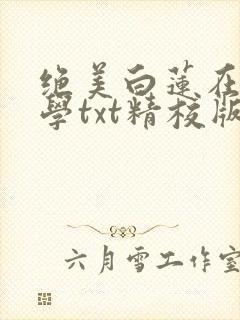 绝美白蓮在
學txt精校版
六月雪工作室